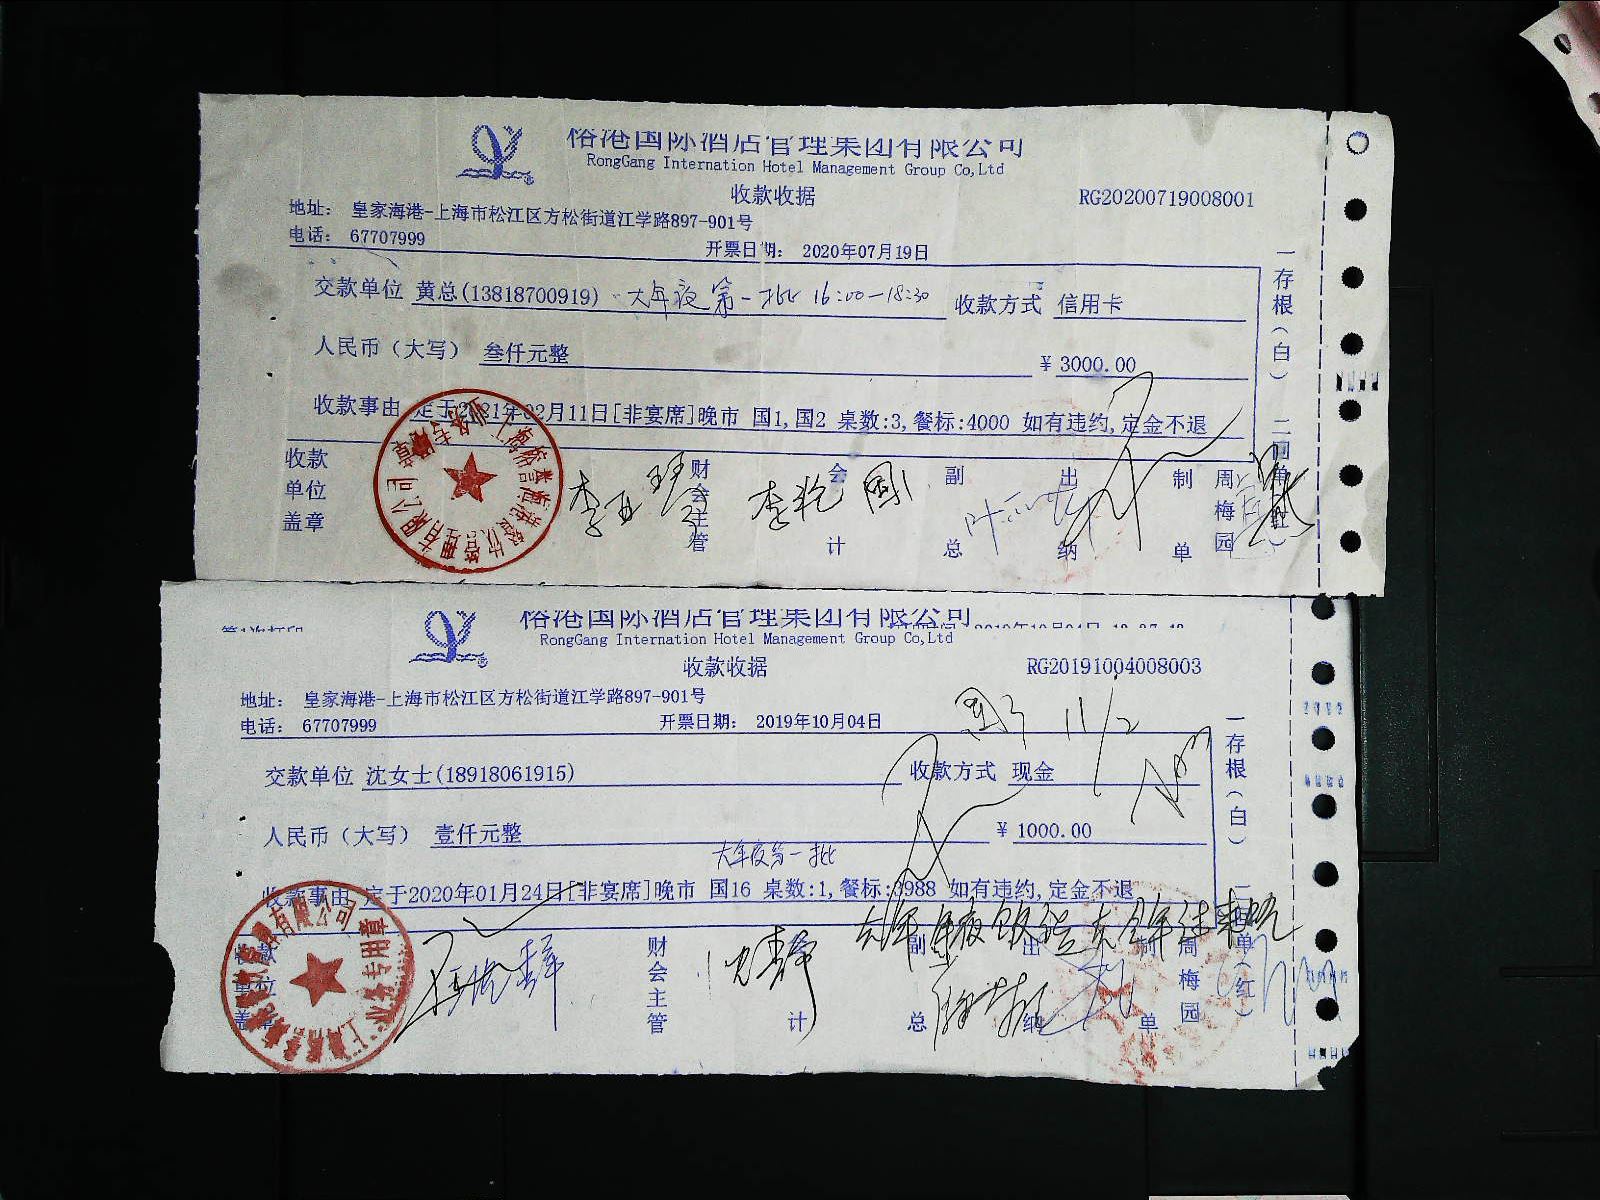 裕港国际酒店管理集团有限公司
RongGang Internation Hotel Management Group Co,Ltd
收款收据 RG20200719008001
地址： 皇家海港-上海市松江区方松街道江学路897-901号
电话： 67707999 开票日期： 2020年07月19日
交款单位 黄总(13818700919) 大年夜第一批 16:00-18:30 收款方式 信用卡
人民币（大写） 叁仟元整 ￥ 3000.00
收款事由 定于2021年02月11日[非宴席]晚市 国1,国2 桌数:3,餐标:4000 如有违约,定金不退
收款单位盖章 财会主管 会计 副总 出纳 制单 周梅园
一存根（白） 二回单（红）
裕港国际酒店管理集团有限公司
RongGang Internation Hotel Management Group Co,Ltd
收款收据 RG20191004008003
地址： 皇家海港-上海市松江区方松街道江学路897-901号
电话： 67707999 开票日期： 2019年10月04日
11/2
交款单位 沈女士(18918061915) 收款方式 现金
人民币（大写） 壹仟元整 ￥ 1000.00
大年夜第一批
收款事由 定于2020年01月24日[非宴席]晚市 国16 桌数:1,餐标:3988 如有违约,定金不退
收款单位盖章 财会主管 计 副总 出纳 制单 周梅园
一存根（白） 二回单（红）